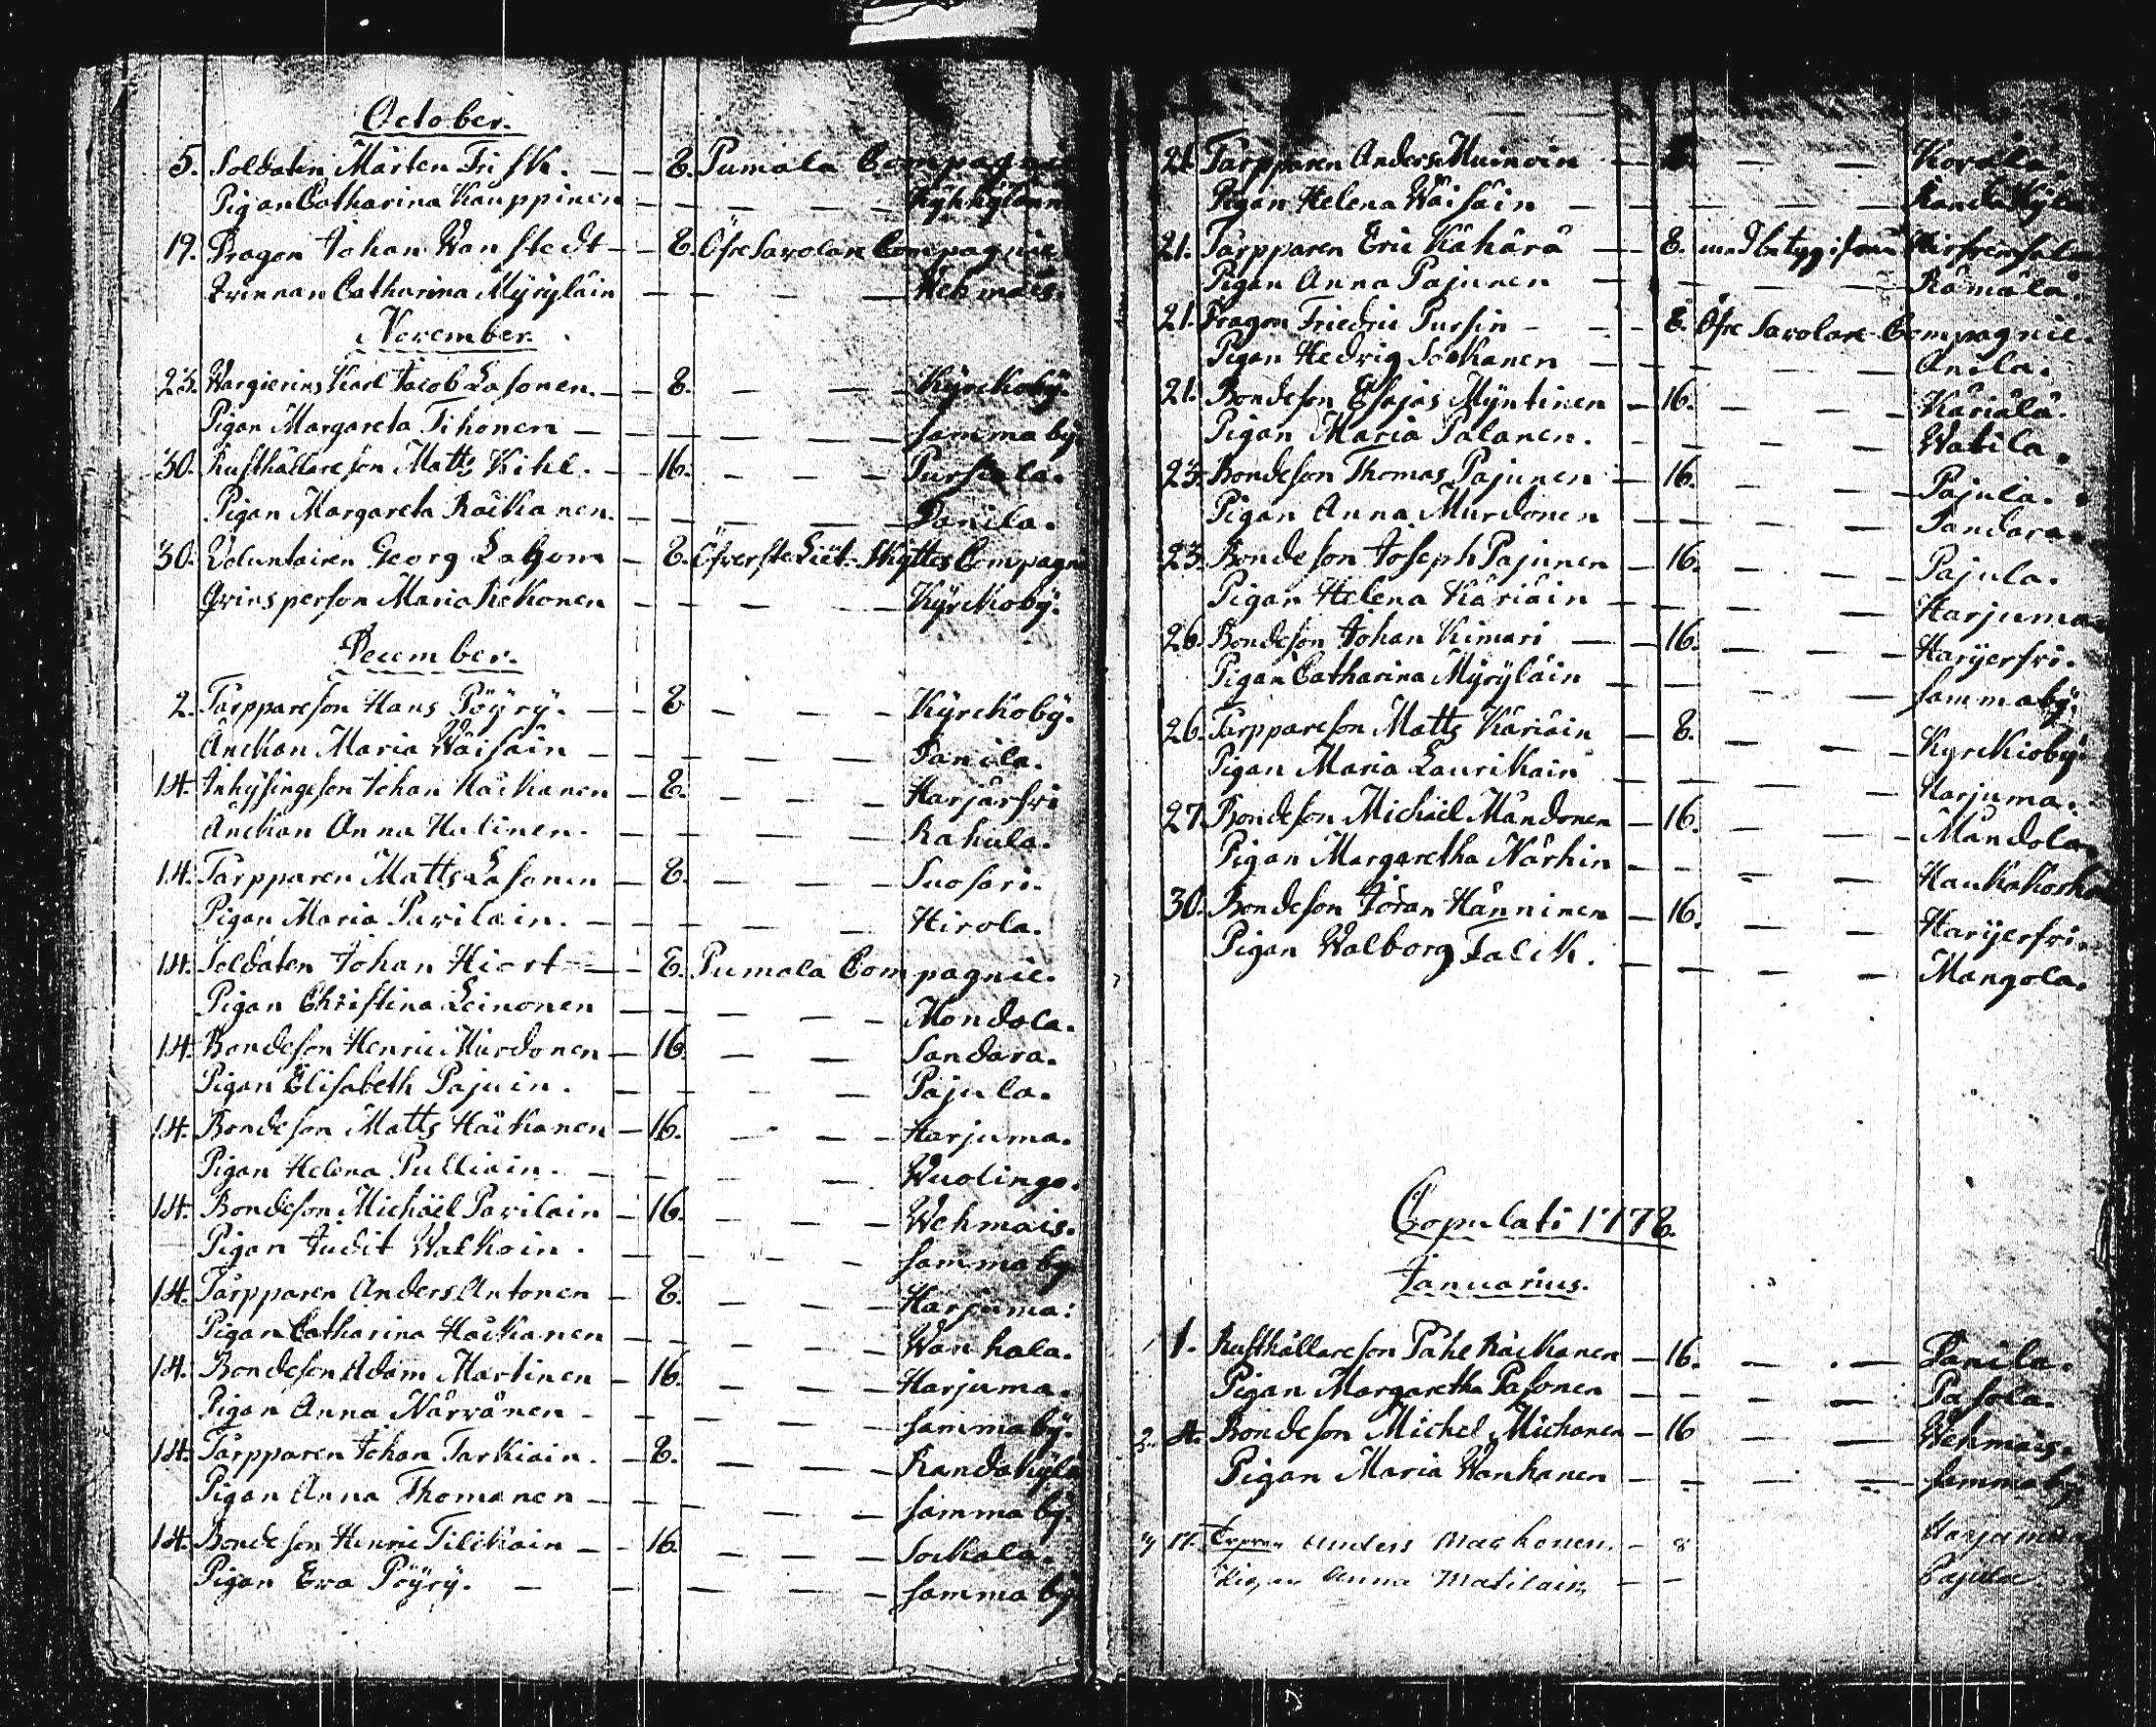 October.
5. Soldaten Mårten Frisk. — — 8. Pumala Compagnie
Pigan Catharina Kauppinen — — — — Kÿhkÿlänn
19. Dragon Johan Wanstedt — — 8. Öfre Savolax Compagnie
Qvinnan Catharina Mÿrÿläin — — — — Wehmais.
November.
23. Karl Jacob Lasonen. — — 8. — — — Kÿrckobÿ.
Pigan Margareta Tihonen — — — — — samma bÿ.
30. Rusthållareson Matts Kihl. — — 16. — — — Pursiala.
Pigan Margareta Räikänen. — — — — Tanila.
30. Volunteiren Georg — 8. Öfverste Liët. Skÿttes Compagn
Qvinsperson Maria Kekonen — — — — — Kÿrckobÿ.
December.
2. Tårppareson Hans Pöÿrÿ. — — 8 — — — Kÿrckobÿ.
Änckan Maria Wäisäin — — — — — — Tanila.
14. Inhÿsingeson Johan Häikänen — — 8. — — — Harjärfvi
Änckan Anna Hulinen. — — — — — — Rahula.
14. Tårpparen Matts Lasonen — — 8. — — — Suosari.
Pigan Maria Pavilain. — — — — — — Hirola.
14. Soldaten Johan Hiort — — 8. Pumala Compagnie.
Pigan Christina Leinonen — — — — — Mondola.
14. Bondeson Henric Murdonen — 16. — — — Sandara.
Pigan Elisabeth Pajuin. — — — — — Pajula.
14. Bondeson Matts Häikänen — 16. — — — Harjuma.
Pigan Helena Pulliain. — — — — — Wuolingo.
14. Bondeson Michäel Pavilain — 16. — — — Wehmais.
Pigan Judit Walkoin. — — — — — samma bÿ
14. Tårpparen Anders Antonen — 8. — — — Harjuma.
Pigan Catharina Häikänen — — — — — Wanhala.
14. Bondeson Adam Martinen — 16. — — — Harjuma.
Pigan Anna Närvänen — — — — — samma bÿ.
14. Tårpparen Johan Tarkiain. — 8. — — — Randakÿlä
Pigan Anna Thomanen — — — — — samma bÿ.
14. Bondeson Henric Tilikain — — 16. — — — Sockala.
Pigan Eva Pöÿrÿ. — — — — — samma bÿ
21. Tårpparen Anders — 8. — — Korala.
Pigan Helena Wäisäin — — — — — Randakÿlä
21. Tårpparen Eric Kähärä — — 8. med betyg ifrån
Pigan Anna Pajunen — — — — — Rämälä.
21. Dragon Friedric Pursin — — — 8. Öfre Savolax Compagnie.
Pigan Hedvig Sockanen — — — — — Anila.
21. Bondeson Esajas Mÿntinen — 16. — — — Käriälä.
Pigan Maria Palanen. — — — — — Watila.
23. Bondeson Thomas Pajunen — 16. — — — Pajula.
Pigan Anna Murdonen — — — — — Sandara.
23. Bondeson Joseph Pajunen — 16. — — — Pajula.
Pigan Helena Käriäin — — — — — Harjuma.
26. Bondeson Johan Kimari — — 16. — — — Harjerfvi.
Pigan Catharina Mÿrÿläin — — — — — samma bÿ.
26. Tårppareson Matts Käriäin — 8. — — — Kyrckioby.
Pigan Maria Laurikain — — — — — Harjuma.
27. Bondeson Michäel Mändonen — 16. — — — Mändola.
Pigan Margaretha Närhin — — — — — Haukakorh
30. Bondeson Jöran Hänninen — 16. — — — Harjerfvi.
Pigan Walborg Falck. — — — — — Mangola.
Copulati 1778.
Januarius.
1. Rusthållareson Påhl Räikänen — 16. — — Tanila.
Pigan Margaretha Pasonen — — — — Pasola.
2. 4. Bondeson Michel Michanen — 16 — — Wehmais.
Pigan Maria Wanhanen — — — — samma bÿ
3 11. Anders Mackonen. — 8 Harjuma
Pigan Anna Matilain, — — Pajula.